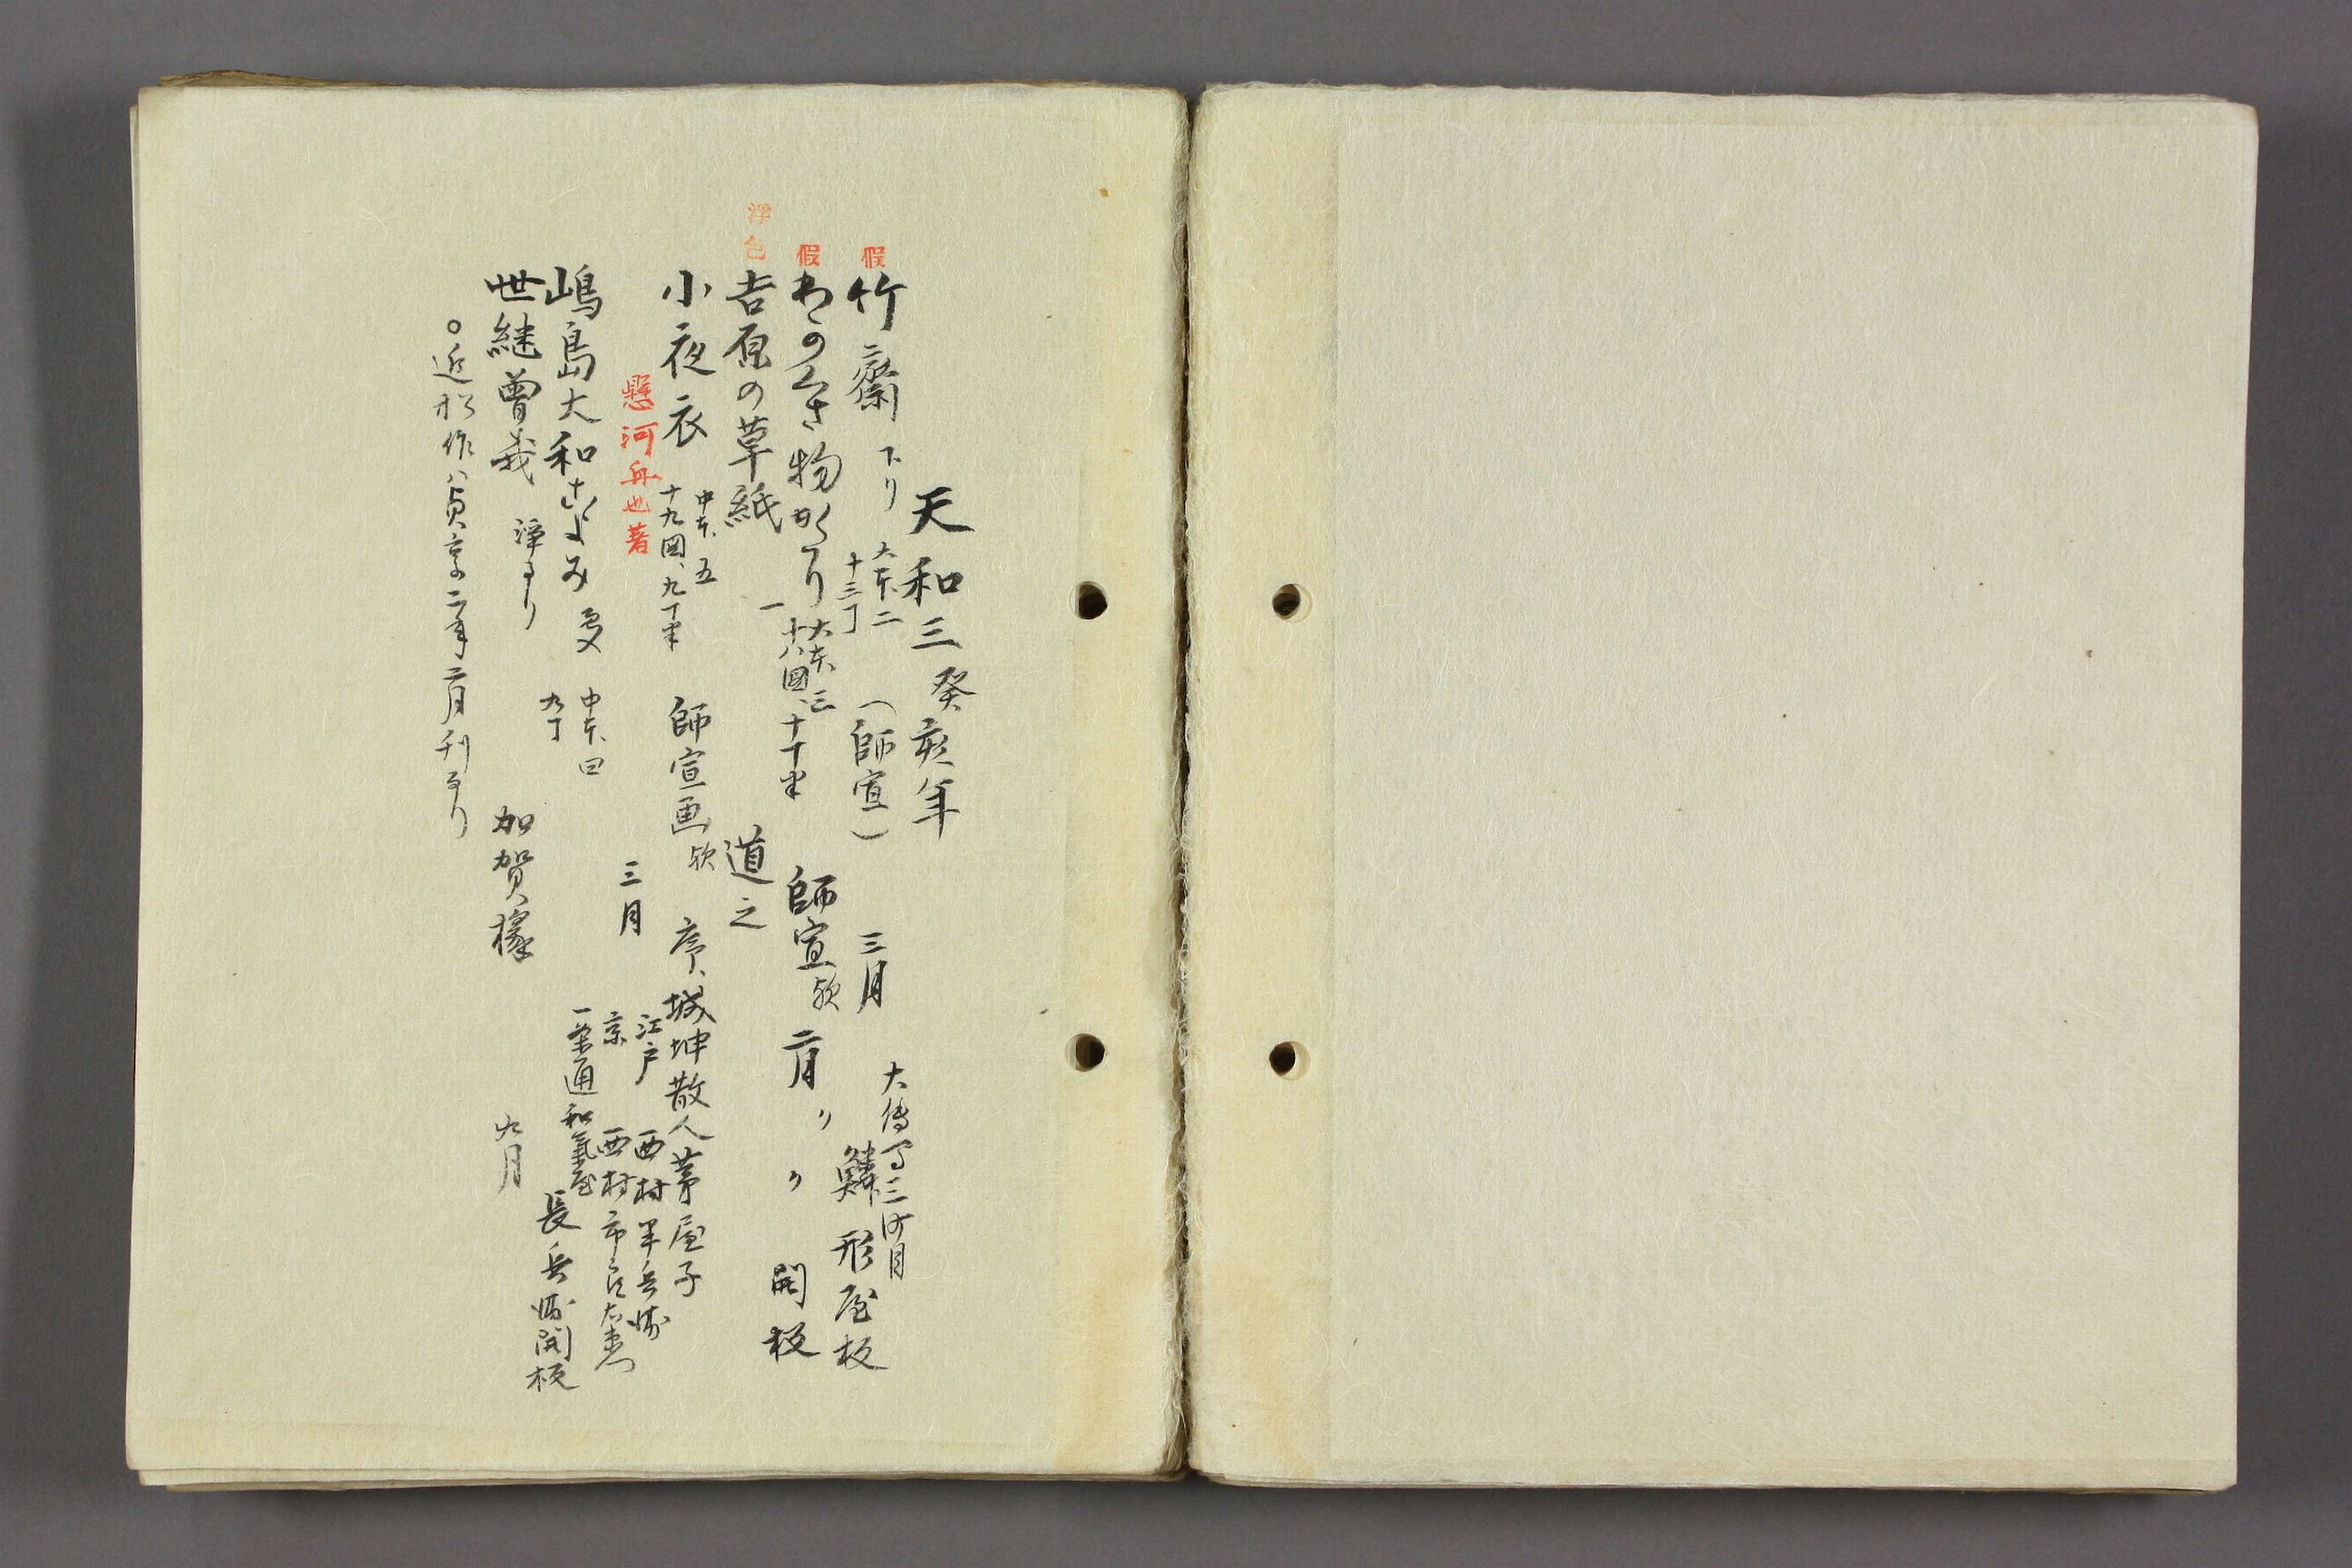 天和三癸亥年
假
竹齋 下り 大本、二 十三丁 (師宣) 三月 大傳马三町目 鱗形屋板
假
わのくさ物かたり 大本、三 十八圖、十丁半 師宣欤 二月 〃 〃 開板
浮色
吉原の草紙 一 道之
小夜衣 中本、五 十九圖、九丁半 師宣画欤 序、城坤散人茅屋子
懸河舟也著 三月 江戸 西村半兵衛
京 西村市良右衛門
嶋島大和こよみ 中本、四 九丁 一条通 和氣屋 長兵衛開板
世継曽我 浄るり 加賀掾 九月
○近松作ハ貞享二年二月刊なり